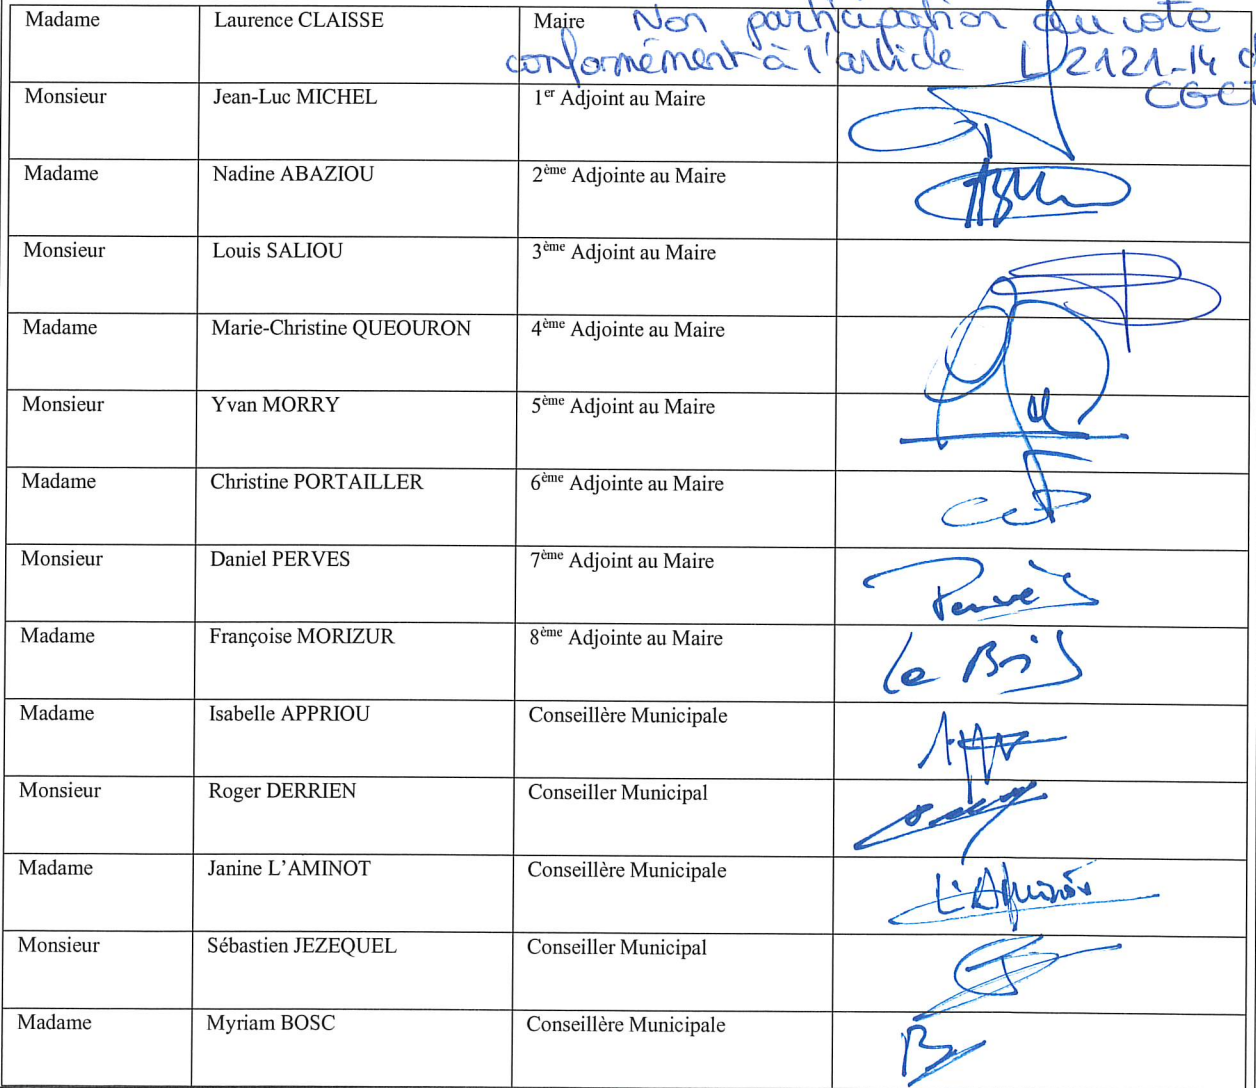 Madame Laurence CLAISSE Maire Non participation au vote
conformément à l'article L2121-14 d
CGCT
Monsieur Jean-Luc MICHEL 1er Adjoint au Maire
Madame Nadine ABAZIOU 2ème Adjointe au Maire
Monsieur Louis SALIOU 3ème Adjoint au Maire
Madame Marie-Christine QUEOURON 4ème Adjointe au Maire
Monsieur Yvan MORRY 5ème Adjoint au Maire
Madame Christine PORTAILLER 6ème Adjointe au Maire
Monsieur Daniel PERVES 7ème Adjoint au Maire
Madame Françoise MORIZUR 8ème Adjointe au Maire
Madame Isabelle APPRIOU Conseillère Municipale
Monsieur Roger DERRIEN Conseiller Municipal
Madame Janine L'AMINOT Conseillère Municipale L'Aminot
Monsieur Sébastien JEZEQUEL Conseiller Municipal
Madame Myriam BOSC Conseillère Municipale